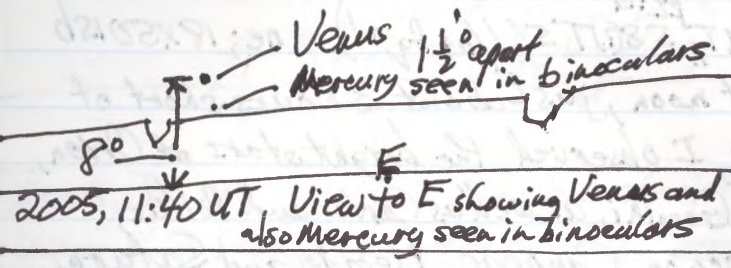 Venus 1 1/2° apart
Mercury seen in binoculars
8°
E
2005, 11:40 UT, View to E showing Venus and
also Mercury seen in binoculars